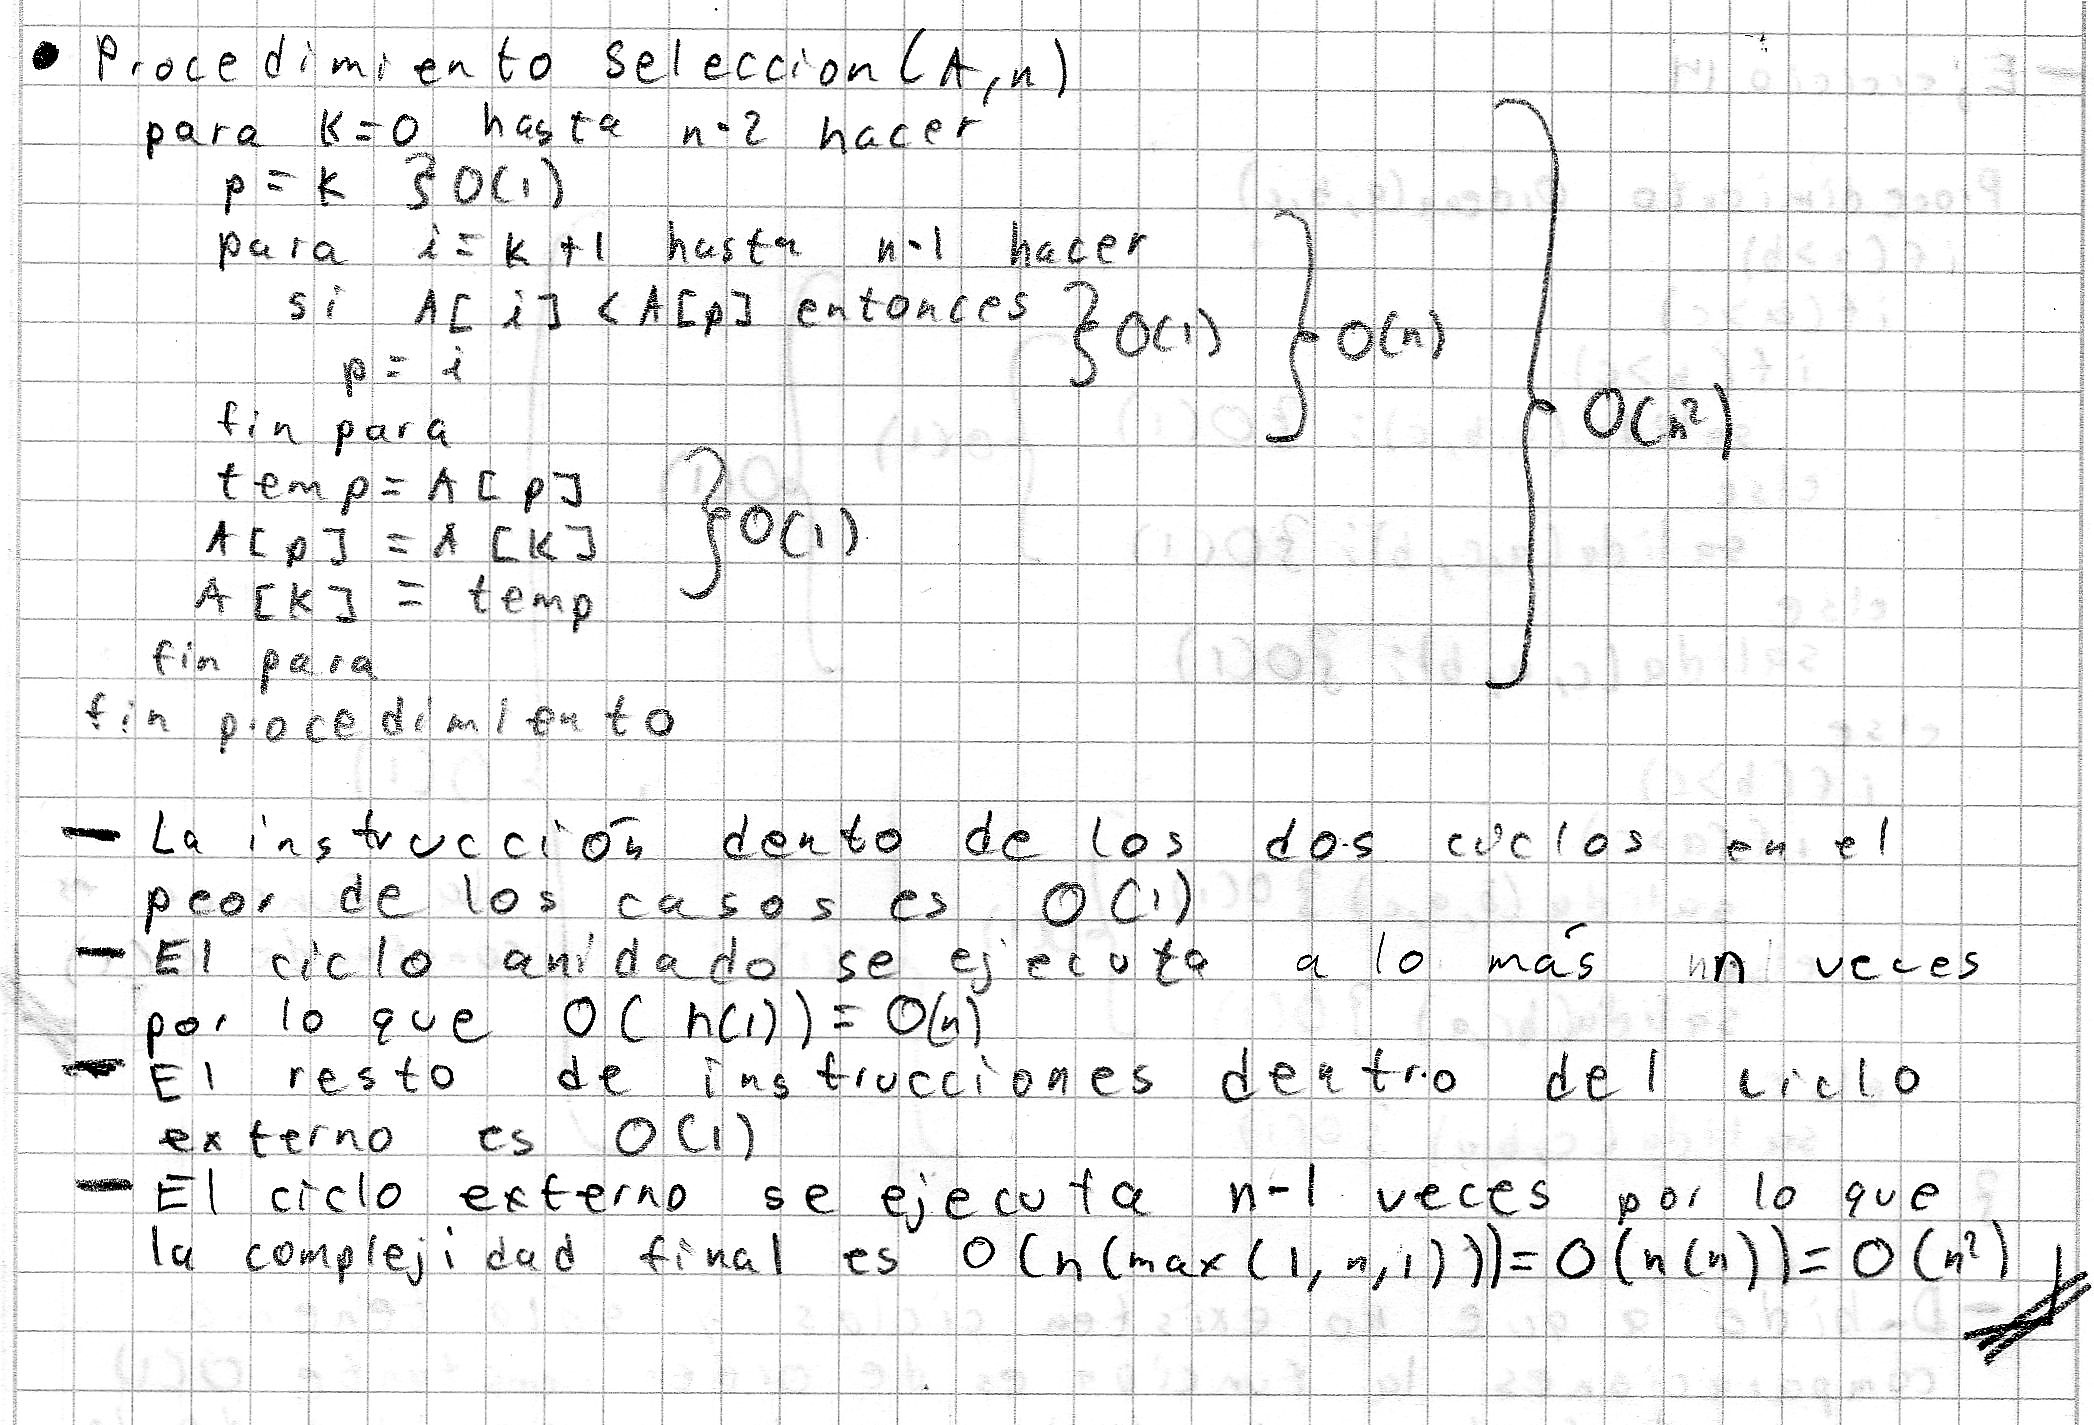 • Procedimiento Seleccion(A,n)
para K=0 hasta n-2 hacer
p = K } O(1)
para i = k+1 hasta n-1 hacer
si A[i] < A[p] entonces } O(1) } O(n)
p = i
} O(n²)
fin para
temp = A[p]
A[p] = A[K] } O(1)
A[K] = temp
fin para
fin procedimiento
- La instrucción dento de los dos ciclos en el
peor de los casos es O(1)
- El ciclo anidado se ejecuta a lo más n veces
por lo que O(n(1)) = O(n)
- El resto de instrucciones dentro del ciclo
externo es O(1)
- El ciclo externo se ejecuta n-1 veces por lo que
la complejidad final es O(n(max(1,n,1))) = O(n(n)) = O(n²)